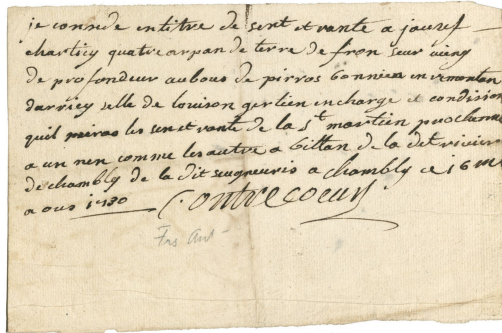 je consede en titre de sent et rante a jousef
chartiey quatre arpan de terre de fron seur vieng
de profondeur au bous de pirros bonnien en remontan
darriey selle de louison gertien en charge et condision
quil peiras les sen et rante de la St martien prochenne
a un nen comme les autre a bittan de la det rivier
de chambly de la dit seugneuris a chambly ce 16 me
a ous 1730 Contrecoeur
Frs Ant